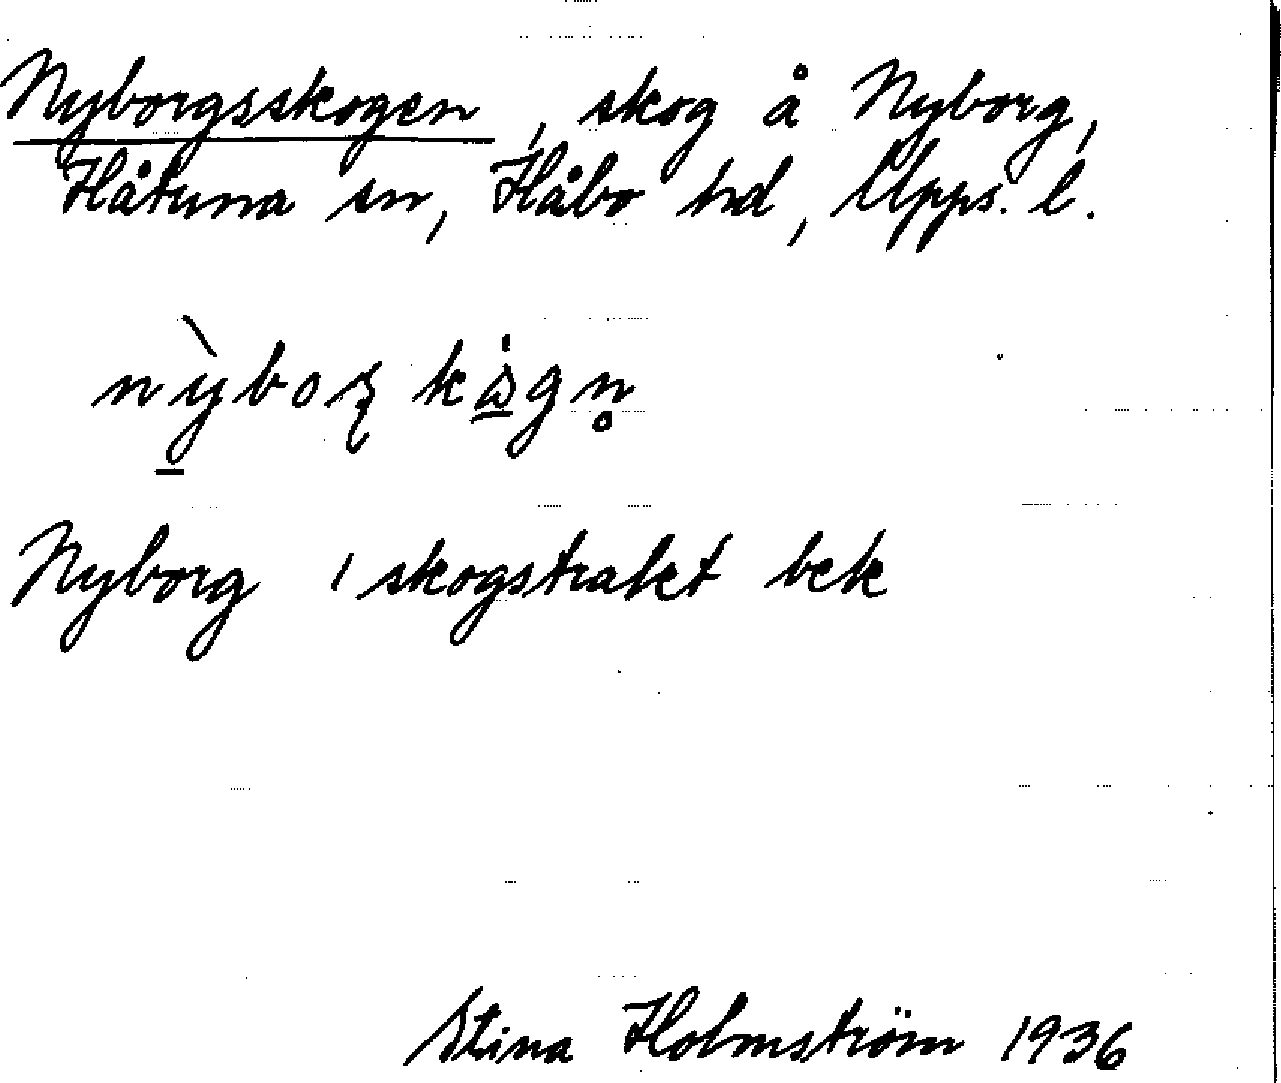 Nyborgsskogen, skog å Nyborg,
Håtuna sn, Håbo hd, Upps. l.
Nyborg i skogstrakt bek
Stina Holmström 1936